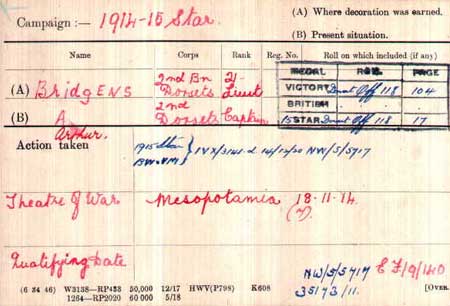 Campaign :— 1914-15 Star. (A) Where decoration was earned.
(B) Present situation.
Name Corps Rank Reg. No. Roll on which included (if any)
(A) BRIDGENS 2nd Bn Dorsets 2/- Lieut
(B) A Arthur. 2nd Dorsets Captn
MEDAL ROLL PAGE
VICTORY Off 118 104
BRITISH
15 STAR Off 118 17
Action taken 1915 Star BW&VM } IVX/3141 d 14/12/20 NW/5/5917
Theatre of War. Mesopotamia 18-11-14.
Qualifying Date
NW/5/5917 E F/9/140
35173/11.
(6 34 46) W3138—RP4538 50,000 12/17 HWV(P798) K608 [OVER.
1264—RP2020 60 000 5/18